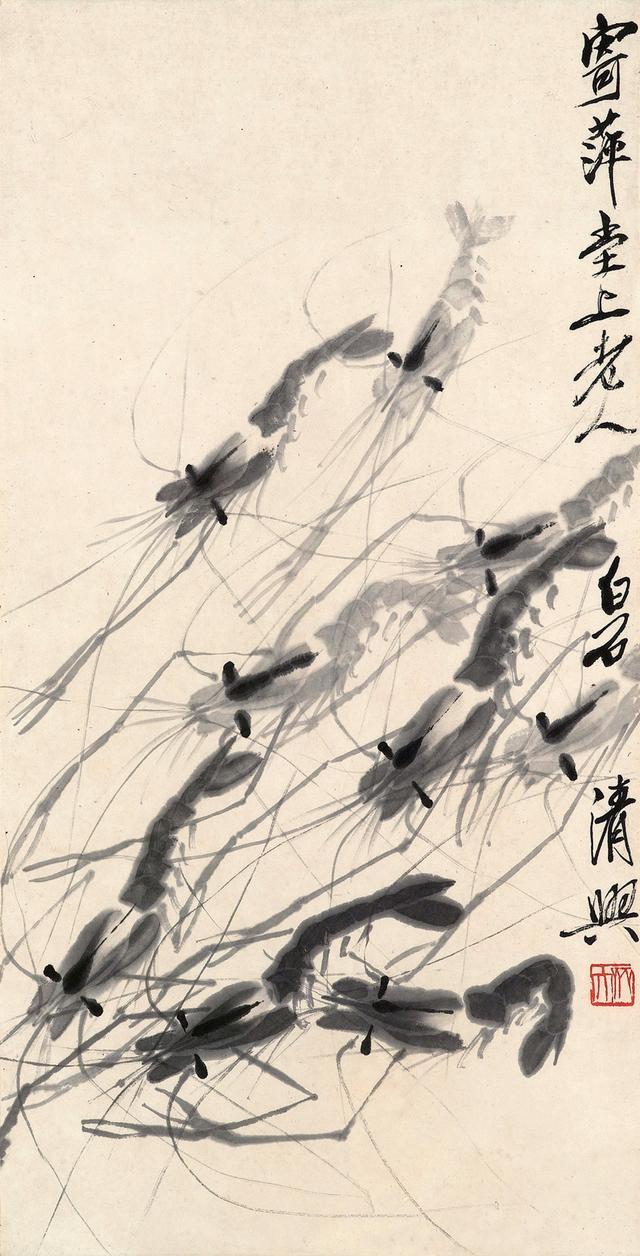 寄萍堂上老人白石清興